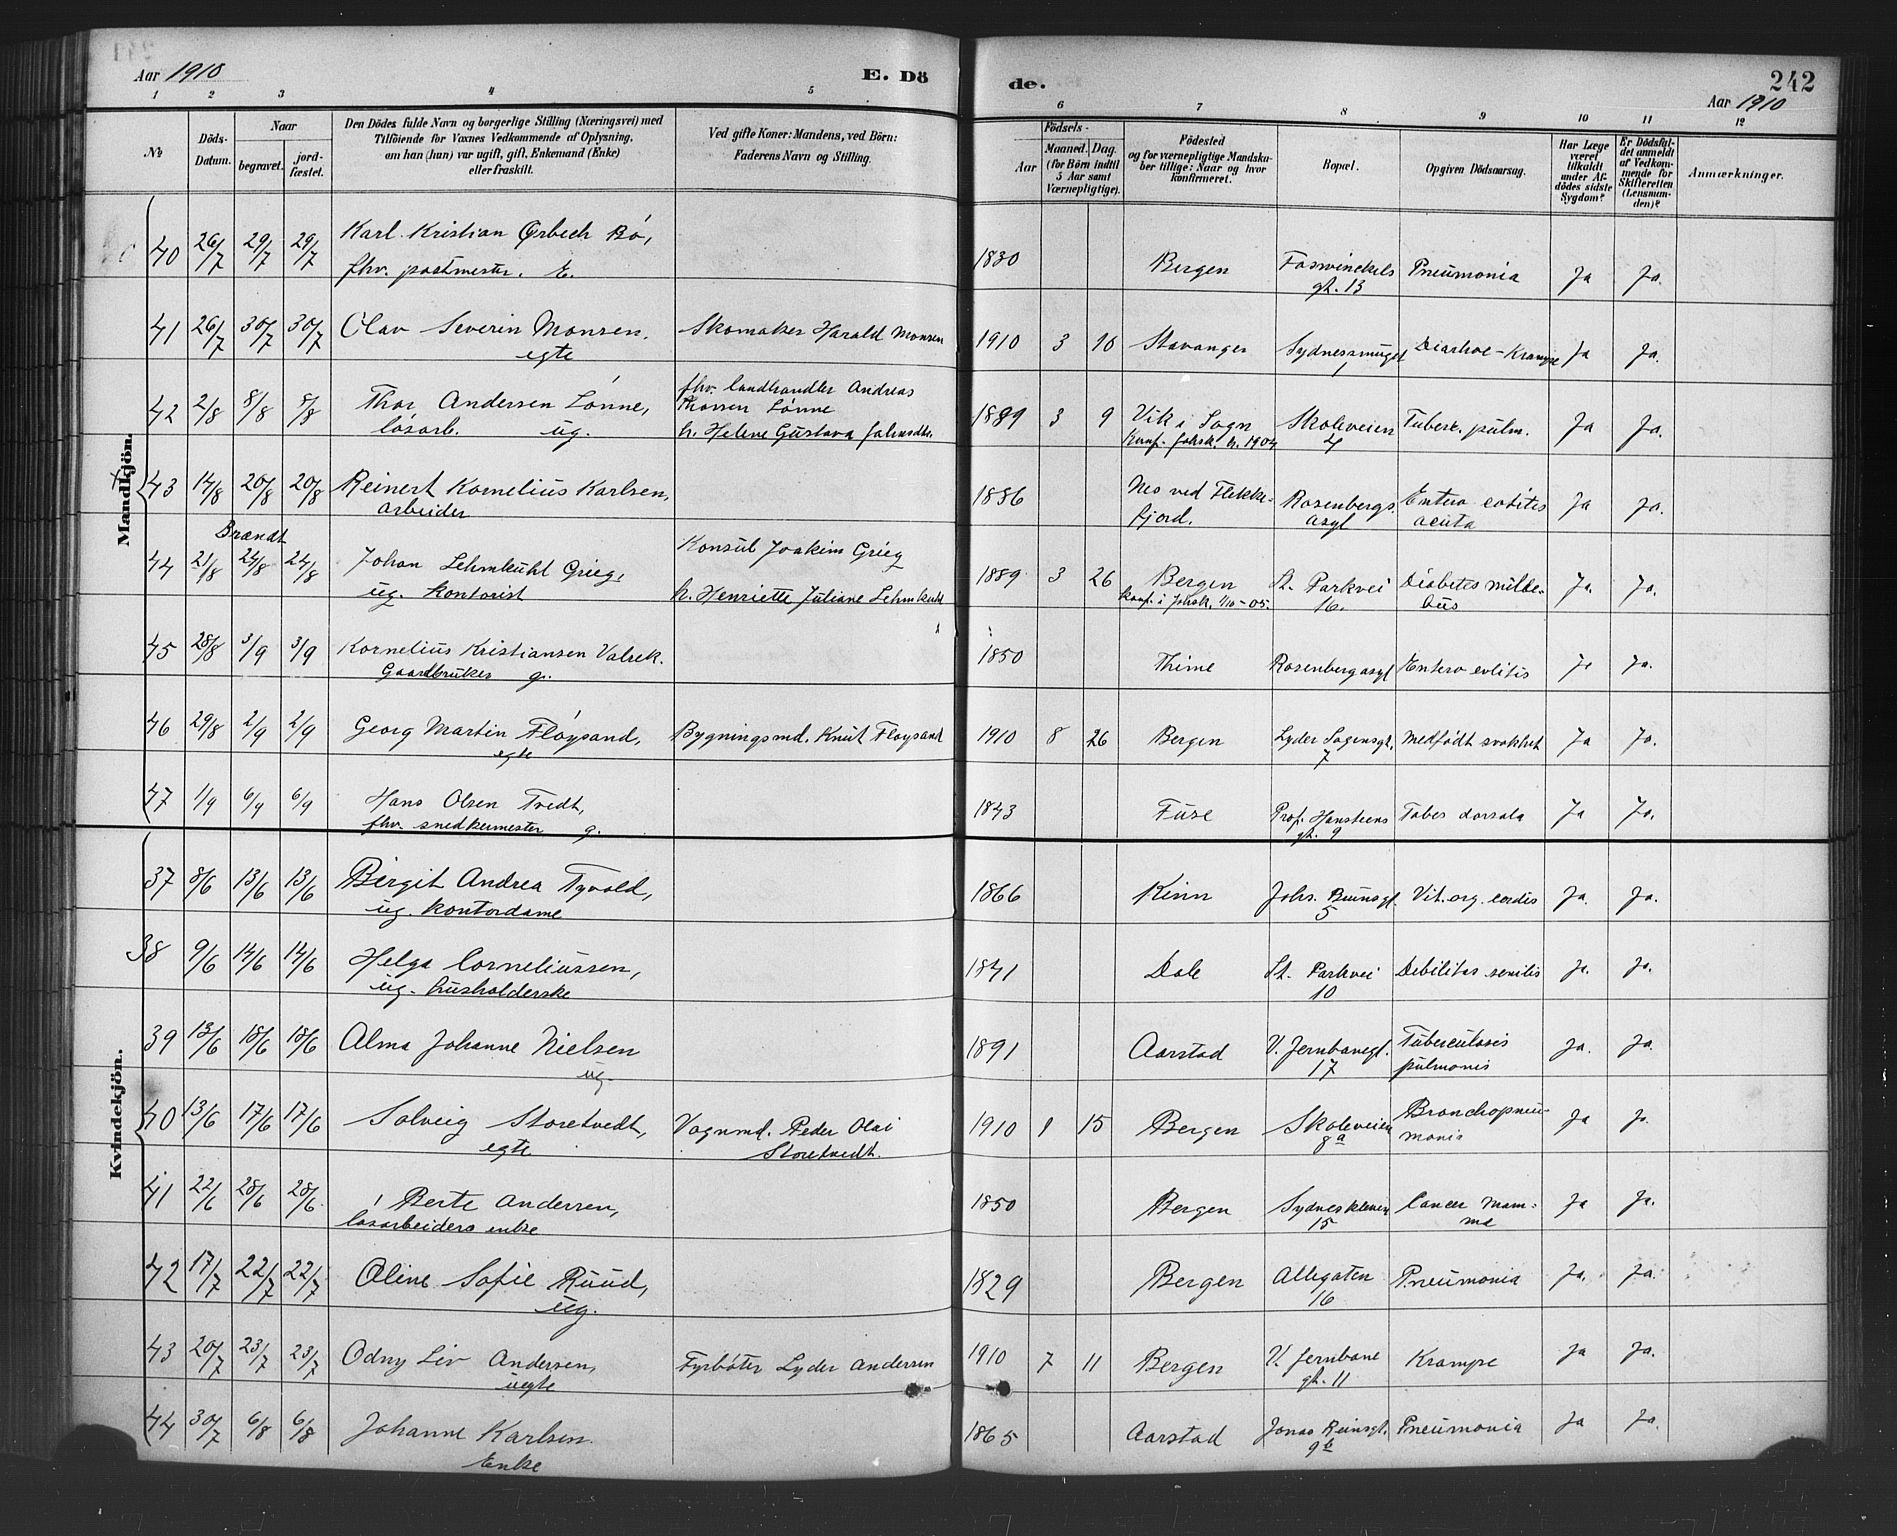 Aar 1910
E. Dö
de.
242
Aar 1910
1 2 3 4 5 6 7 8 9 10 11 12
No.
Döds-Datum.
Naar
begravet.
jord-fæstet.
Den Dödes fulde Navn og borgerlige Stilling (Næringsvei) med
Tilföiende for Voxnes Vedkommende af Oplysning,
om han (hun) var ugift, gift, Enkemand (Enke)
eller fraskilt.
Ved gifte Koner: Mandens, ved Börn:
Faderens Navn og Stilling.
Födsels-
Aar
Maaned. Dag.
(for Börn indtil
5 Aar samt
Værnepligtige).
Födested
og for værnepligtige Mandska-
ber tillige: Naar og hvor
konfirmeret.
Bopæl.
Opgiven Dödsaarsag.
Har Læge
været
tilkaldt
under Af-
dödes sidste
Sygdom?
Er Dödsfal-
det anmeldt
af Vedkom-
mende for
Skifteretten
(Lensman-
den)?
Anmærkninger.
Mandkjön.
40 26/7 29/7 29/7 Karl Kristian Ørbech Bø, 1830 Bergen Foswinckels Pneumonia Ja Ja.
fhv. postmester. E. gt. 13
41 26/7 30/7 30/7 Olav Severin Monsen, Skomaker Harald Monsen 1910 3 10 Stavanger Sydnessmuget Diarhoe-Krampe Ja Ja.
egte 1
42 2/8 8/8 8/8 Thor Andersen Lønne, fhv. landhandler Andreas 1889 3 9 Vik i Sogn Skoleveien Tuberk. pulm. Ja Ja.
løsarb. ug. Thorsen Lønne Konf. Johsk. h. 1904 4
h. Helene Gustava Johnsdtr.
43 14/8 20/8 20/8 Reinert Kornelius Karlsen, 1886 Nes ved Flekke- Rosenbergs Entero colites Ja Ja.
arbeider fjord. asyl acuta
Brandt
44 21/8 24/8 24/8 Johan Lehmkuhl Grieg, Konsul Joakim Grieg 1889 3 26 Bergen St. Parkvei Diabetes Ja. Ja.
ug. kontorist h. Henriette Juliane Lehmkuhl konf. i Johsk. 1/10-05. 16.
45 28/8 3/9 3/9 Kornelius Kristiansen Valrek. 1850 Thime Rosenbergasyl Entero colitis Ja Ja.
Gaardbruker g.
46 29/8 2/9 2/9 Georg Martin Fløysand, Bygningsmd. Knut Fløysand 1910 8 26 Bergen Lyder Sagensgt. Medfødt svakhet Ja Ja.
egte 7
47 1/9 6/9 6/9 Hans Olsen Tvedt, 1843 Fuse Prof. Hansteens Tabes dorsala Ja Ja.
fhv. snedkermester g. gt. 9
Kvindekjön.
37 8/6 13/6 13/6 Birgit Andrea Tyvold, 1866 Kinn Johs. Bruunsgt. Vit. org. cordis Ja. Ja.
ug. kontordame 5
38 9/6 14/6 14/6 Helga Corneliussen, 1841 Dale St. Parkvei Debilitas senilis Ja. Ja.
ug. husholderske 10
39 13/6 18/6 18/6 Alma Johanne Nielsen 1891 Aarstad V. Jernbanegt. Tuberculosis Ja. Ja.
ug. 17 pulmonis
40 13/6 17/6 17/6 Solveig Storetvedt, Vognmd. Peder Olai 1910 1 15 Bergen Skoleveien Bronchopneu- Ja Ja
egte Storetvedt. 8a monia
41 22/6 28/6 28/6 Berte Andersen, 1850 Bergen Sydneskleven Cancer mam- Ja Ja.
løsarbeiders enke 15 mae
42 17/7 22/7 22/7 Oline Sofie Ruud, 1829 Bergen Allegaten Pneumonia Ja. Ja.
ug. 16
43 20/7 23/7 23/7 Odny Liv Andersen, Fyrbøter Lyder Andersen 1910 7 11 Bergen V. Jernbane Krampe Ja Ja.
uegte gt. 11
44 30/7 6/8 6/8 Johanne Karlsen. 1865 Aarstad Jonas Reinsgt. Pneumonia Ja Ja.
Enke 9b